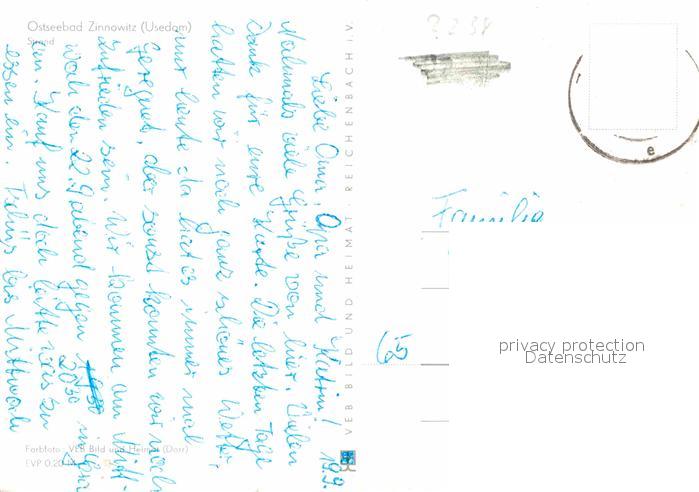 Ostseebad Zinnowitz (Usedom)
Strand
19.9.
Liebe Oma, Opa und
Nochmals viele Grüße von hier. Vielen
Dank für eure Karte. Die letzten Tage
hatten wir noch ganz schönes Wetter,
nur heute da hat es immer mal
geregnet, aber sonst konnten wir noch
zufrieden sein. Wir kommen am Mitt-
woch den 22. abend gegen 20³⁰ in
an. Kauf uns doch bitte was zu
essen ein. Tschüs bis Mittwoch
Farbfoto: VEB Bild und Heimat (Dorr)
EVP 0,20 M
VEB BILD UND HEIMAT REICHENBACH i.V.
Familie
65
e
privacy protection
Datenschutz